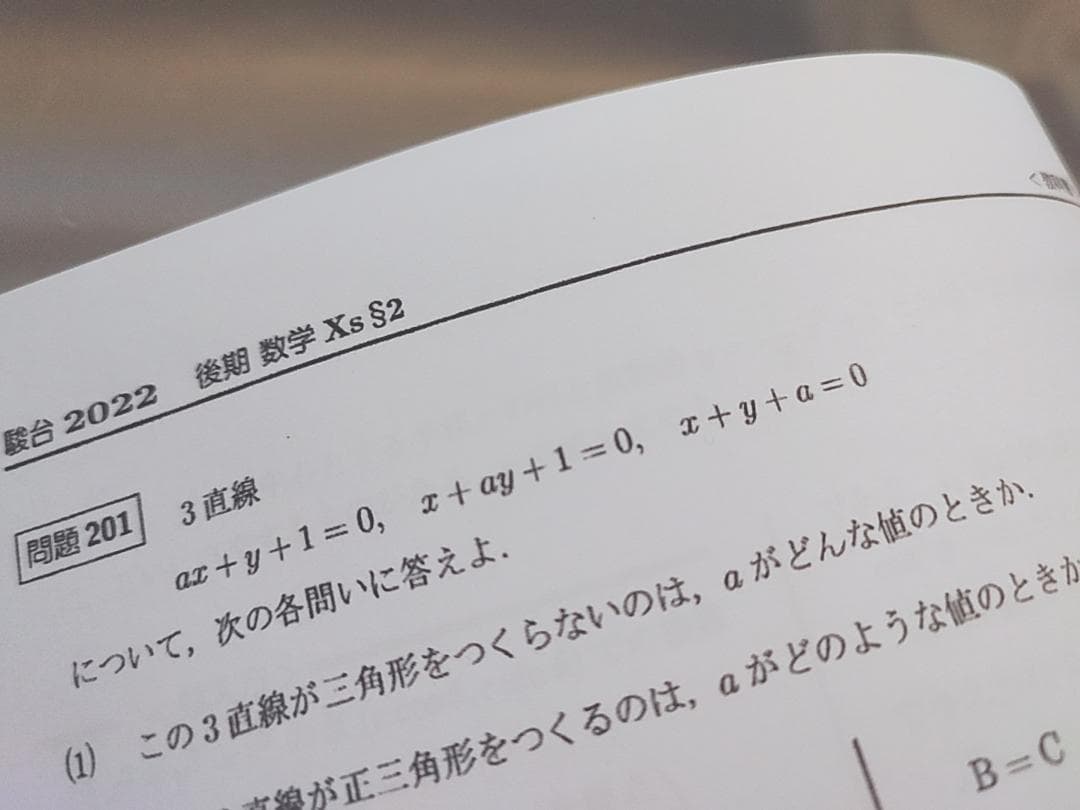 駿台 2022 後期 数学 Xs §2
問題 201 3 直線
ax + y + 1 = 0, x + ay + 1 = 0, x + y + a = 0
について, 次の各問いに答えよ.
(1) この 3 直線が三角形をつくらないのは, a がどんな値のときか.
直線が正三角形をつくるのは, a がどのような値のときか
B = C